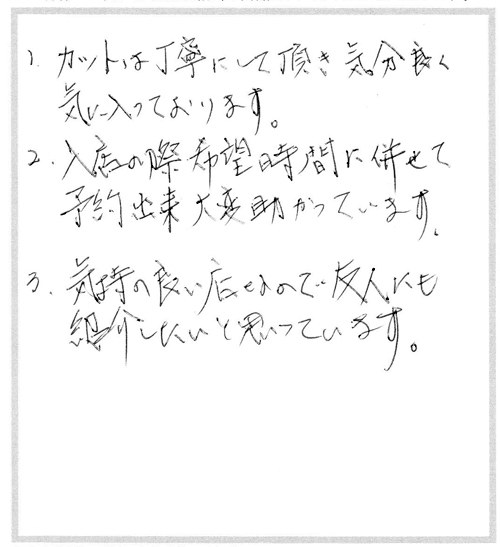 1. カットは丁寧にして頂き気分良く
気に入っております。
2. 入店の際希望時間に併せて
予約出来大変助かっています。
3. 気持の良い店なので友人にも
紹介したいと思っています。